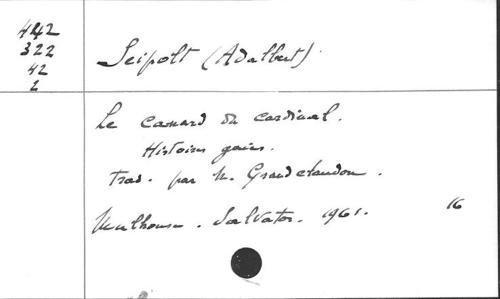 442
322
42
2
Seipolt (Adalbert)
Le canard du cardinal.
Histoires gaies.
Trad. par M. Grandclaudon.
Mulhouse. Salvator. 1961. 16